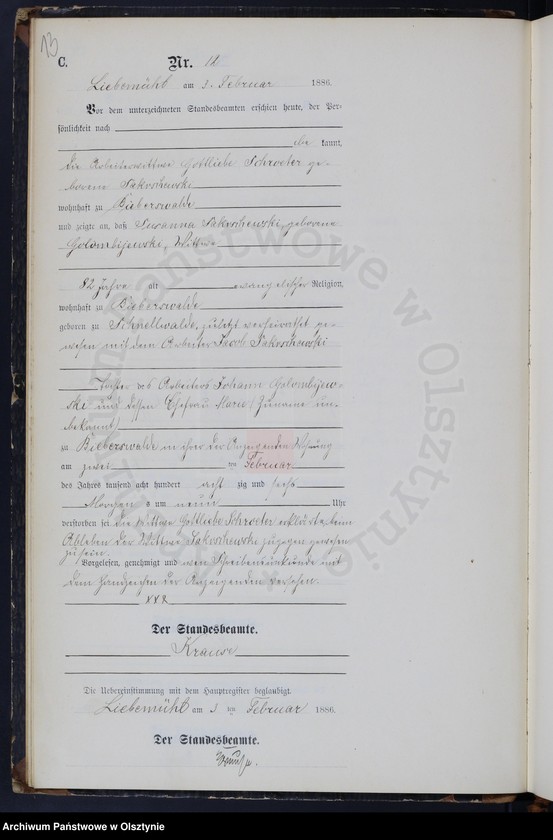 13
C.
Nr. 12
Liebemühl am 3. Februar 1886.
Vor dem unterzeichneten Standesbeamten erschien heute, der Per-
sönlichkeit nach
be kannt,
die Arbeiterwittwe Gottliebe Schroeter ge-
borene Sakoschewski
wohnhaft zu Bieberswalde
und zeigte an, daß Susanna Sakoschewski, geborene
Golombijewski, Wittwe
82 Jahre alt evangelischer Religion,
wohnhaft zu Bieberswalde
geboren zu Schnellwalde, zuletzt verheirathet ge-
wesen mit dem Arbeiter Jacob Sakoschewski
Tochter des Arbeiters Johann Golombijew-
ski und dessen Ehefrau Marie (Zuname un-
bekannt)
zu Bieberswalde in ihrer der Anzeigenden Wohnung
am zwei ten Februar
des Jahres tausend acht hundert acht zig und sechs
Morgens um neun Uhr
verstorben sei die Wittwe Gottliebe Schroeter erklärte beim
Ableben der Wittwe Sakoschewski zugegen gewesen
zu sein.
Vorgelesen, genehmigt und wegen Schreibensunkunde mit
dem Handzeichen der Anzeigenden versehen.
xxx
Der Standesbeamte.
Krause
Die Uebereinstimmung mit dem Hauptregister beglaubigt.
Liebemühl am 3 ten Februar 1886.
Der Standesbeamte.
Archiwum Państwowe w Olsztynie
Archiwum Państwowe w Olsztynie